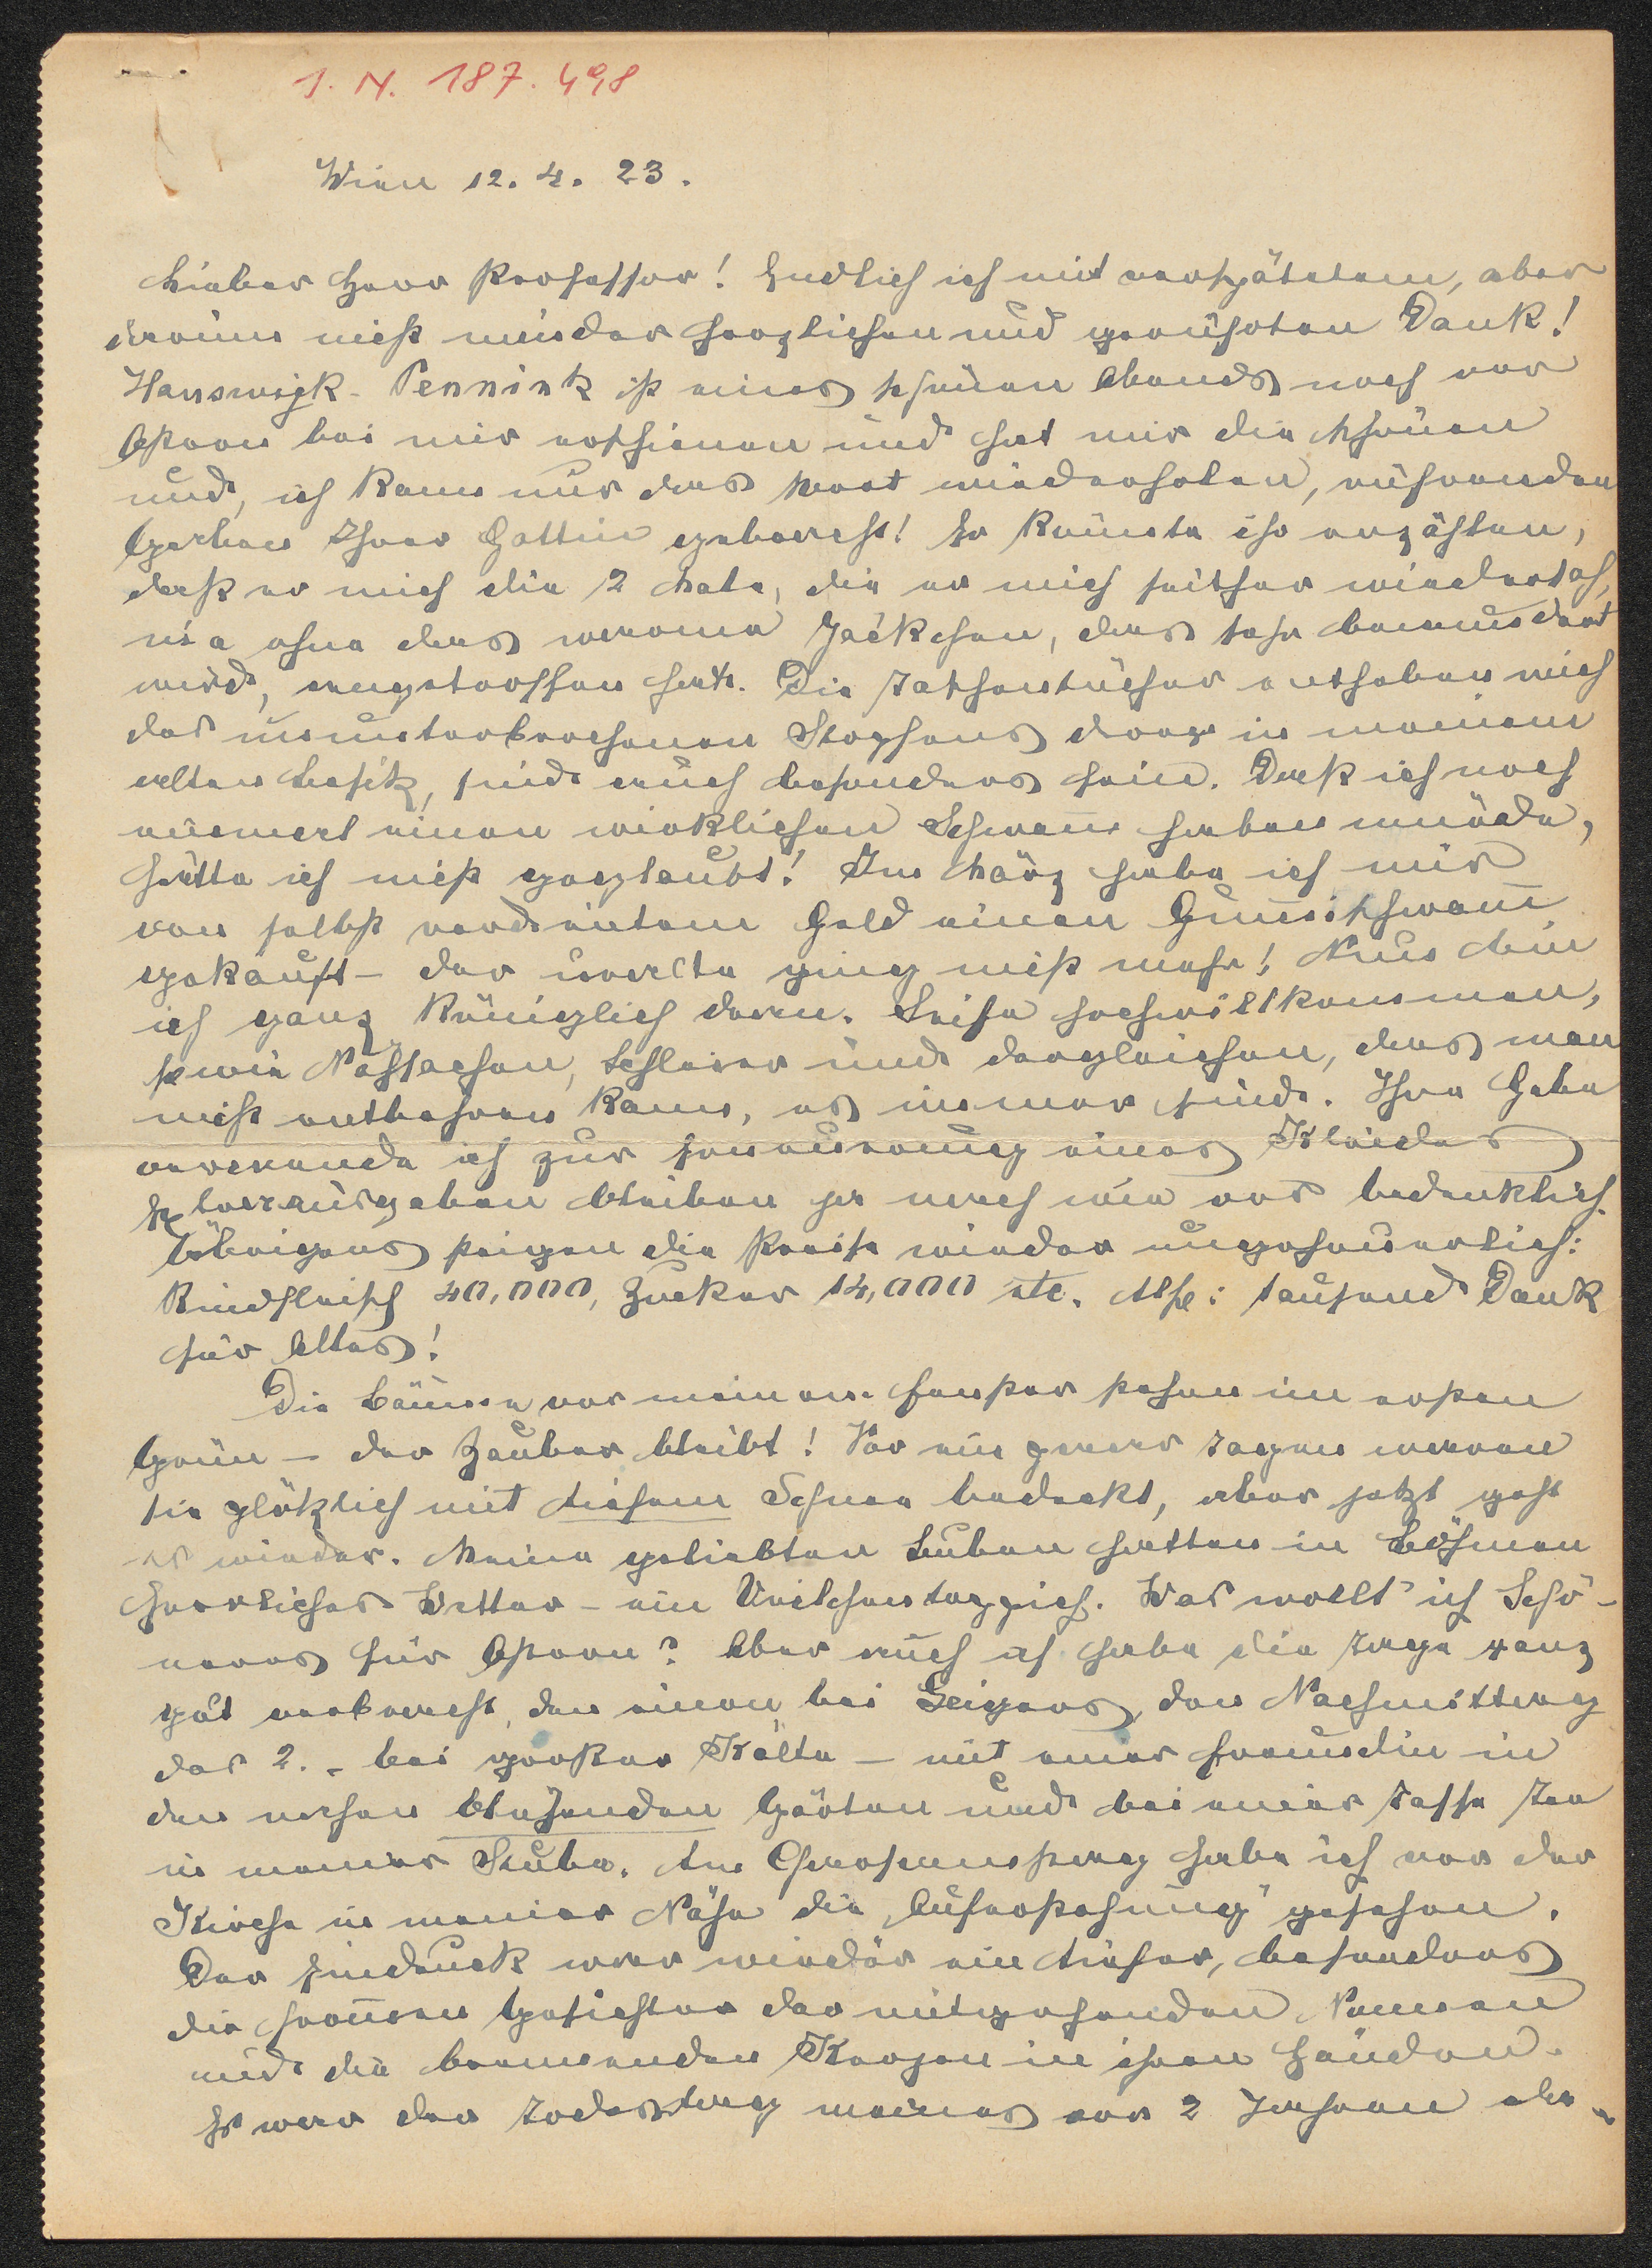 I. N. 187.498
Wien 12. 4. 23.
Lieber Herr Professor! Endlich ich mit verspätetem, aber
darum nicht minder herzlichen und gerührten Dank!
Hanswijk-Pennink ist eines schönen Abends noch vor
Ostern bei mir erschienen und hat mir die schönen
und, ich kann nur das Wort wiederholen, rührenden
Gaben Ihrer Gattin gebracht! Er könnte ihr erzählen,
daß er mich die 2 Male, die er mich seither wiedersah,
nie ohne das warme Jäckchen, das sehr bewundert
wird, angetroffen hat. Die Taschentücher entheben mich
des ununterbrochenen Stopfens derer in meinem
alten Besitz, sind auch besonders fein. Daß ich noch
einmal einen wirklichen Schwamm haben würde,
hätte ich nicht geglaubt! Im März habe ich mir
von selbst verdientem Geld einen Gummischwamm
gekauft – der uralte ging nicht mehr! Nun bin
ich ganz königlich daran. Seife hochwillkommen,
sowie Nähsachen, Schleier und dergleichen, das man
nicht entbehren kann, es immer sind. Ihre Gabe
verwende ich zur Erneuerung eines Kleides
Extraausgaben bleiben ja nach wie vor bedenklich.
Übrigens steigen die Preise wieder ungeheuerlich:
Rindfleisch 40,000, Zucker 14,000 etc. Also: tausend Dank
für Alles!
Die Bäume vor meinem Fenster stehen im ersten
Grün – der Zauber bleibt! Vor ein paar Tagen waren
sie plötzlich mit tiefem Schnee bedeckt, aber jetzt geht
es wieder. Meine geliebten Buben hatten in Böhmen
herrliches Wetter – ein Veilchenteppich. Was wollt' ich Schö-
neres für Ostern? Aber auch ich habe die Tage ganz
gut verbracht, den einen bei Geigers, den Nachmittag
des 2. – bei großer Kälte – mit einer Freundin in
den nahen blühenden Gärten und bei einer Tasse Tee
in meiner Stube. Am Charsamstag habe ich vor der
Kirche in meiner Nähe die „Auferstehung" gesehen.
Der Eindruck war wieder ein tiefer, besonders
die frommen Gesichter der mitgehenden Nonnen
und die brennenden Kerzen in ihren Händen.
Es war der Todestag meines vor 2 Jahren da-